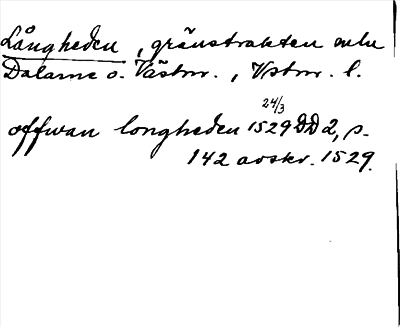 Långheden, gränstrakten mln
Dalarne o. Västmr., Vstmr. l.
24/3
offwan longheden 1529 DD 2, s.
142 avskr. 1529.